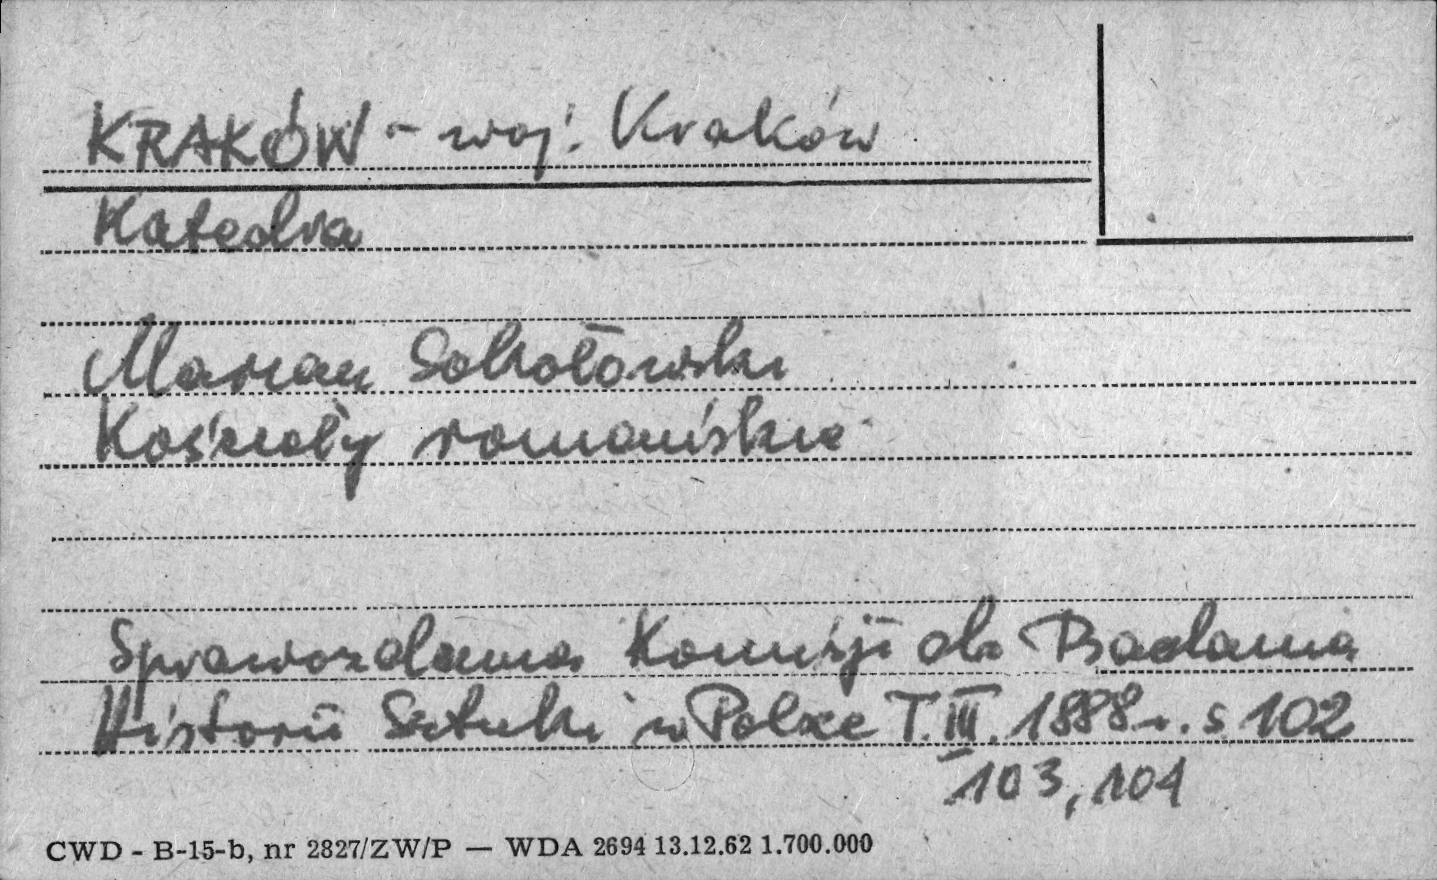 KRAKÓW - woj. Kraków
Katedra
Marian Sokołowski
Kościoły romańskie
Sprawozdania Komisji do Badania
Historii Sztuki w Polsce T. III. 1888 r. s 102
103, 104
CWD - B-15-b, nr 2827/ZW/P — WDA 2694 13.12.62 1.700.000